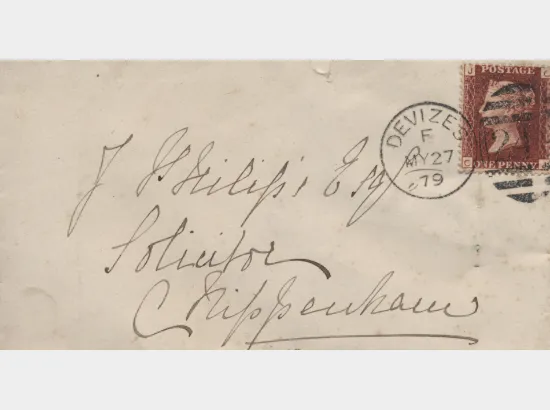 J
POSTAGE
DEVIZES
F
MY 27
79
C
ONE PENNY
J Phillips Esq
Solicitor
Chippenham